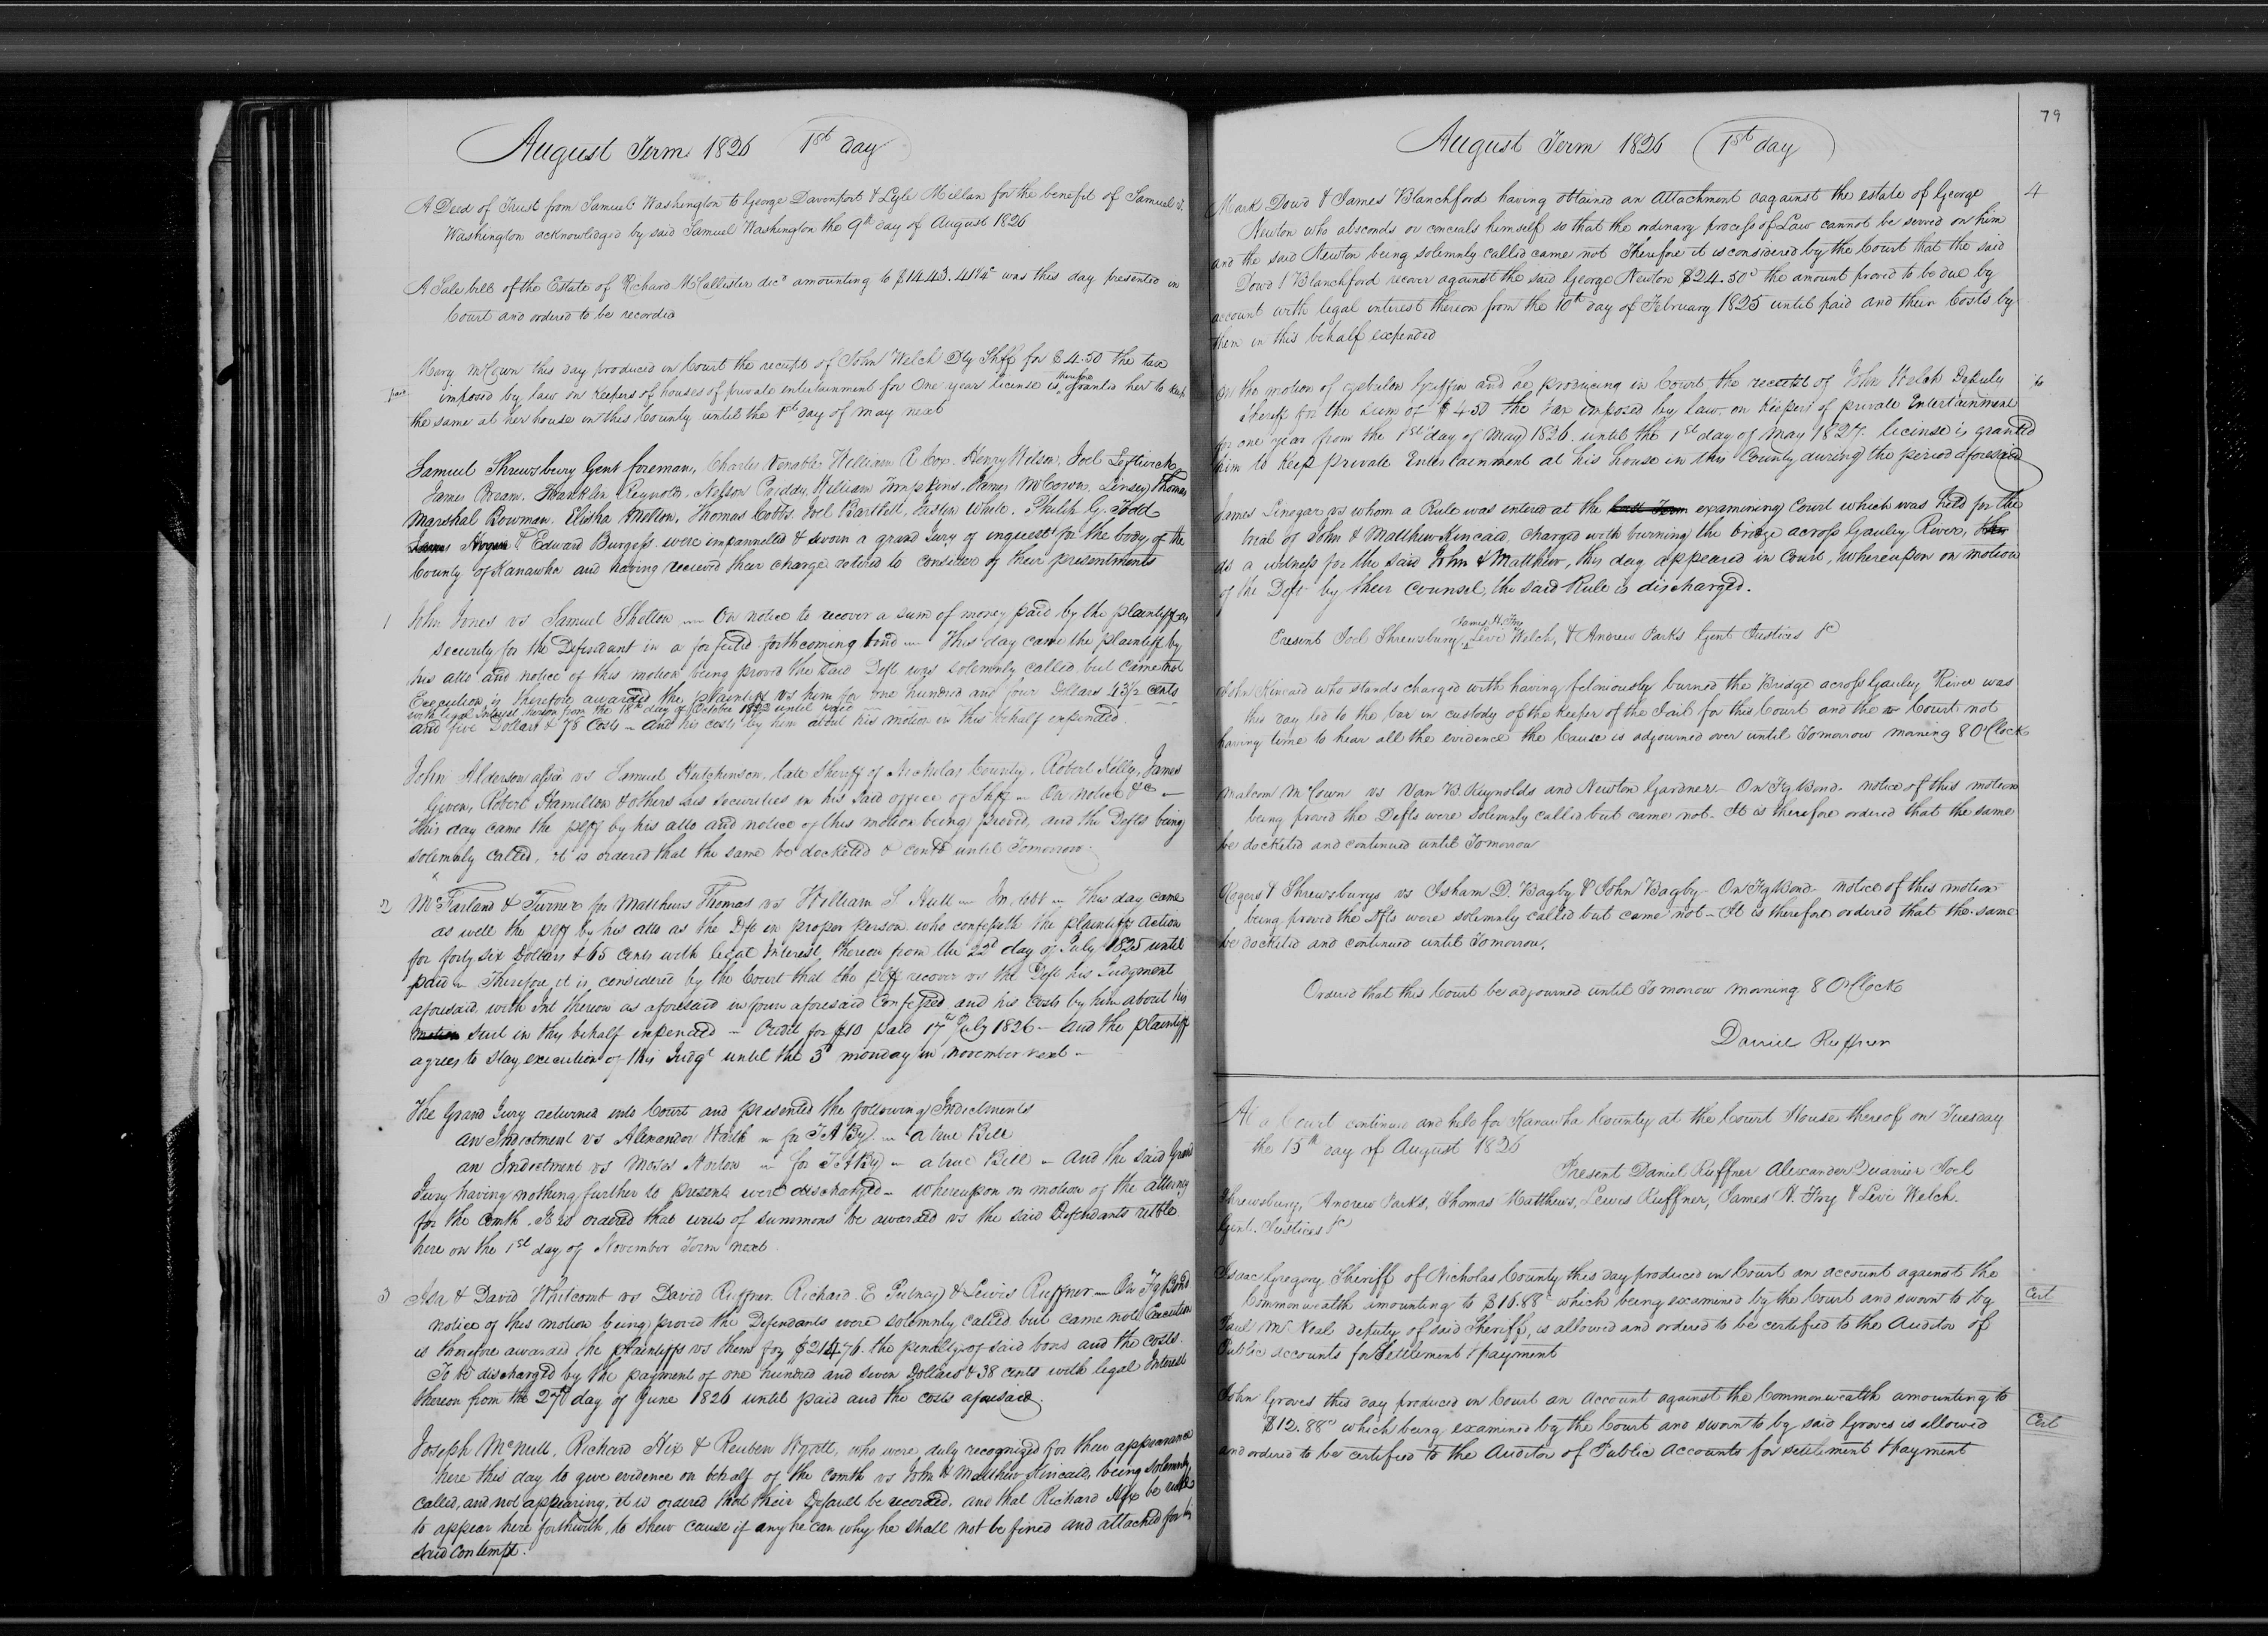 August Term 1826 1st day
A Deed of Trust from Samuel Washington to George Davenport & Lyle Millan for the benefit of Samuel
Washington acknowledged by said Samuel Washington the 9th day of August 1826
A Sale bill of the Estate of Richard McCallister decd amounting to $1443.41 1/4 c was this day presented in
Court and ordered to be recorded
Mary McCown this day produced in Court the receipt of John Welch Dty Shff for $4.50 the tax
imposed by law on keepers of houses of private entertainment for One years license is therefore granted her to keep
the same at her house in this County until the 1st day of May next
Samuel Shrewsbury Gent foreman, Charles Venable, William R Cox, Henry Wilson, Joel Leftwich
James Bream, Franklin Reynolds, Nelson Priddy, William Tompkins, James McCown, Linsey Thomas
Marshal Bowman, Elisha Melton, Thomas Cobbs, Joel Bartlett, White, Philip G. Todd
& Edward Burgess were impannelled & sworn a grand Jury of inquest for the body of the
County of Kanawha and having recieved their charge retired to consider of their presentments
1 John Jones vs Samuel Shelton — On notice to recover a sum of money paid by the plaintiff as
security for the Defendant in a forfeited forthcoming bond — This day came the plaintiff by
his atto and notice of this motion being proved the said Deft was solemnly called but came not
Execution is therefore awarded the plaintiff vs him for one hundred and four Dollars 43 1/2 cents
with legal Interest thereon from the 18th day of October until paid
and five Dollars & 78 Costs — and his costs by him about his motion in this behalf expended
John Alderson assee vs Samuel Hutchinson, late Sheriff of Nicholas County, Robert Kelly, James
Given, Robert Hamilton & others his securities in his said office of Shff — On notice &c —
This day came the plff by his atto and notice of this motion being proved, and the Defts being
solemnly called, it is ordered that the same be docketed & contd until Tomorrow
2 McFarland & Turner for Matthews Thomas vs William S Hull — In debt — This day came
as well the plff by his atto as the Dft in proper person who confesseth the plaintiffs action
for forty six Dollars & 65 Cents with legal Interest thereon from the 22d day of July 1825 until
paid — Therefore it is considered by the Court that the plff recover vs the Deft his Judgment
aforesaid with Int thereon as aforesaid in form aforesaid confessed and his costs by him about his
motion suit in this behalf expended — Credit for $10 paid 17th July 1826 — and the plaintiff
agrees to stay execution of this Judgt until the 3d monday in November next —
The Grand Jury returned into Court and presented the following Indictments
an Indictment vs Alexander — for T A By — a true Bill
an Indictment vs Moses Norton — for T A By — a true Bill — and the said Grand
Jury having nothing further to present were discharged — Whereupon on motion of the attorney
for the Comth. It is ordered that writs of summons be awarded vs the said Defendants retble
here on the 1st day of November Term next
3 Asa & David Whitcomb vs David Ruffner, Richard E Putney & Lewis Ruffner — On Fg Bond
notice of this motion being proved the Defendants were solemnly called but came not. Execution
is therefore awarded the plaintiffs vs them for $214.76 the penalty of said bond and the costs.
To be discharged by the payment of one hundred and seven Dollars & 38 cents with legal Interest
thereon from the 27th day of June 1826 until paid and the costs aforesaid.
Joseph McNutt, Richard Hix & Reuben Wyatt, who were duly recognized for their appearance
here this day to give evidence on behalf of the Comth vs John & Matthew Kincaid, being solemnly
called, and not appearing, it is ordered that their Default be recorded, and that Richard Hix be
to appear here forthwith, to shew cause if any he can why he shall not be fined and attached for his
said contempt.
79
August Term 1826 1st day
Mark Dowd & James Blanchford having obtained an Attachment aagainst the estate of George 4
Newton who absconds or conceals himself so that the ordinary process of Law cannot be served on him
and the said Newton being solemnly called came not Therefore it is considered by the Court that the said
Dowd & Blanchford recover against the said George Newton $24.50c the amount proved to be due by
account with legal interest thereon from the 10th day of February 1825 until paid and their Costs by
them in this behalf expended
On the motion of Zebulon Griffin and he producing in Court the receipt of John Welch Deputy
Sheriff for the sum of $4.50 the tax imposed by law on Keepers of private Entertainment
for one year from the 1st day of May 1826 until the 1st day of May 1827. license is granted
him to Keep private Entertainment at his house in this County during the period aforesaid
James Linegar vs whom a Rule was entered at the last Term examining Court which was held for the
trial of John & Matthew Kincaid, charged with burning the bridge across Gauley River,
as a witness for the said John & Matthew, this day appeared in Court, whereupon on motion
of the Deft by their counsel, the said Rule is discharged.
Present Joel Shrewsbury, James H. Fry Levi Welch, & Andrew Parks Gent Justices &c
John Kincaid who stands charged with having feloniously burned the Bridge across Gauley River was
this day led to the bar in custody of the Keeper of the Jail for this Court and the Court not
having time to hear all the evidence the Cause is adjourned over until Tomorrow morning 8 OClock
Malcom McCown vs Van B. Reynolds and Newton Gardner — On Fg Bond — notice of this motion
being proved the Defts were solemnly called but came not — It is therefore ordered that the same
be docketed and continued until Tomorrow
Rogers & Shrewsburys vs Isham D. Bagby & John Bagby — On Fg Bond — notice of this motion
being proved the Dfts were solemnly called but came not — It is therefore ordered that the same
be docketed and continued until Tomorrow.
Ordered that this Court be adjourned until Tomorrow morning 8 OClock
Daniel Ruffner
At a Court continued and held for Kanawha County at the Court House thereof on Tuesday
the 15th day of August 1826
Present Daniel Ruffner Alexander Quarrier Joel
Shrewsbury, Andrew Parks, Thomas Matthews, Lewis Ruffner, James H. Fry & Levi Welch.
Gent. Justices &c
Isaac Gregory Sheriff of Nicholas County this day produced in Court an account against the
Commonwealth amounting to $16.88c which being examined by the Court and sworn to by Cert
Paul McNeal deputy of said Sheriff, is allowed and ordered to be certified to the Auditor of
Public accounts for Settlement & payment
John Groves this day produced in Court an Account against the Commonwealth amounting to
$12.88c which being examined by the Court and sworn to by said Groves is allowed Cert
and ordered to be certified to the Auditor of Public Accounts for settlement & payment